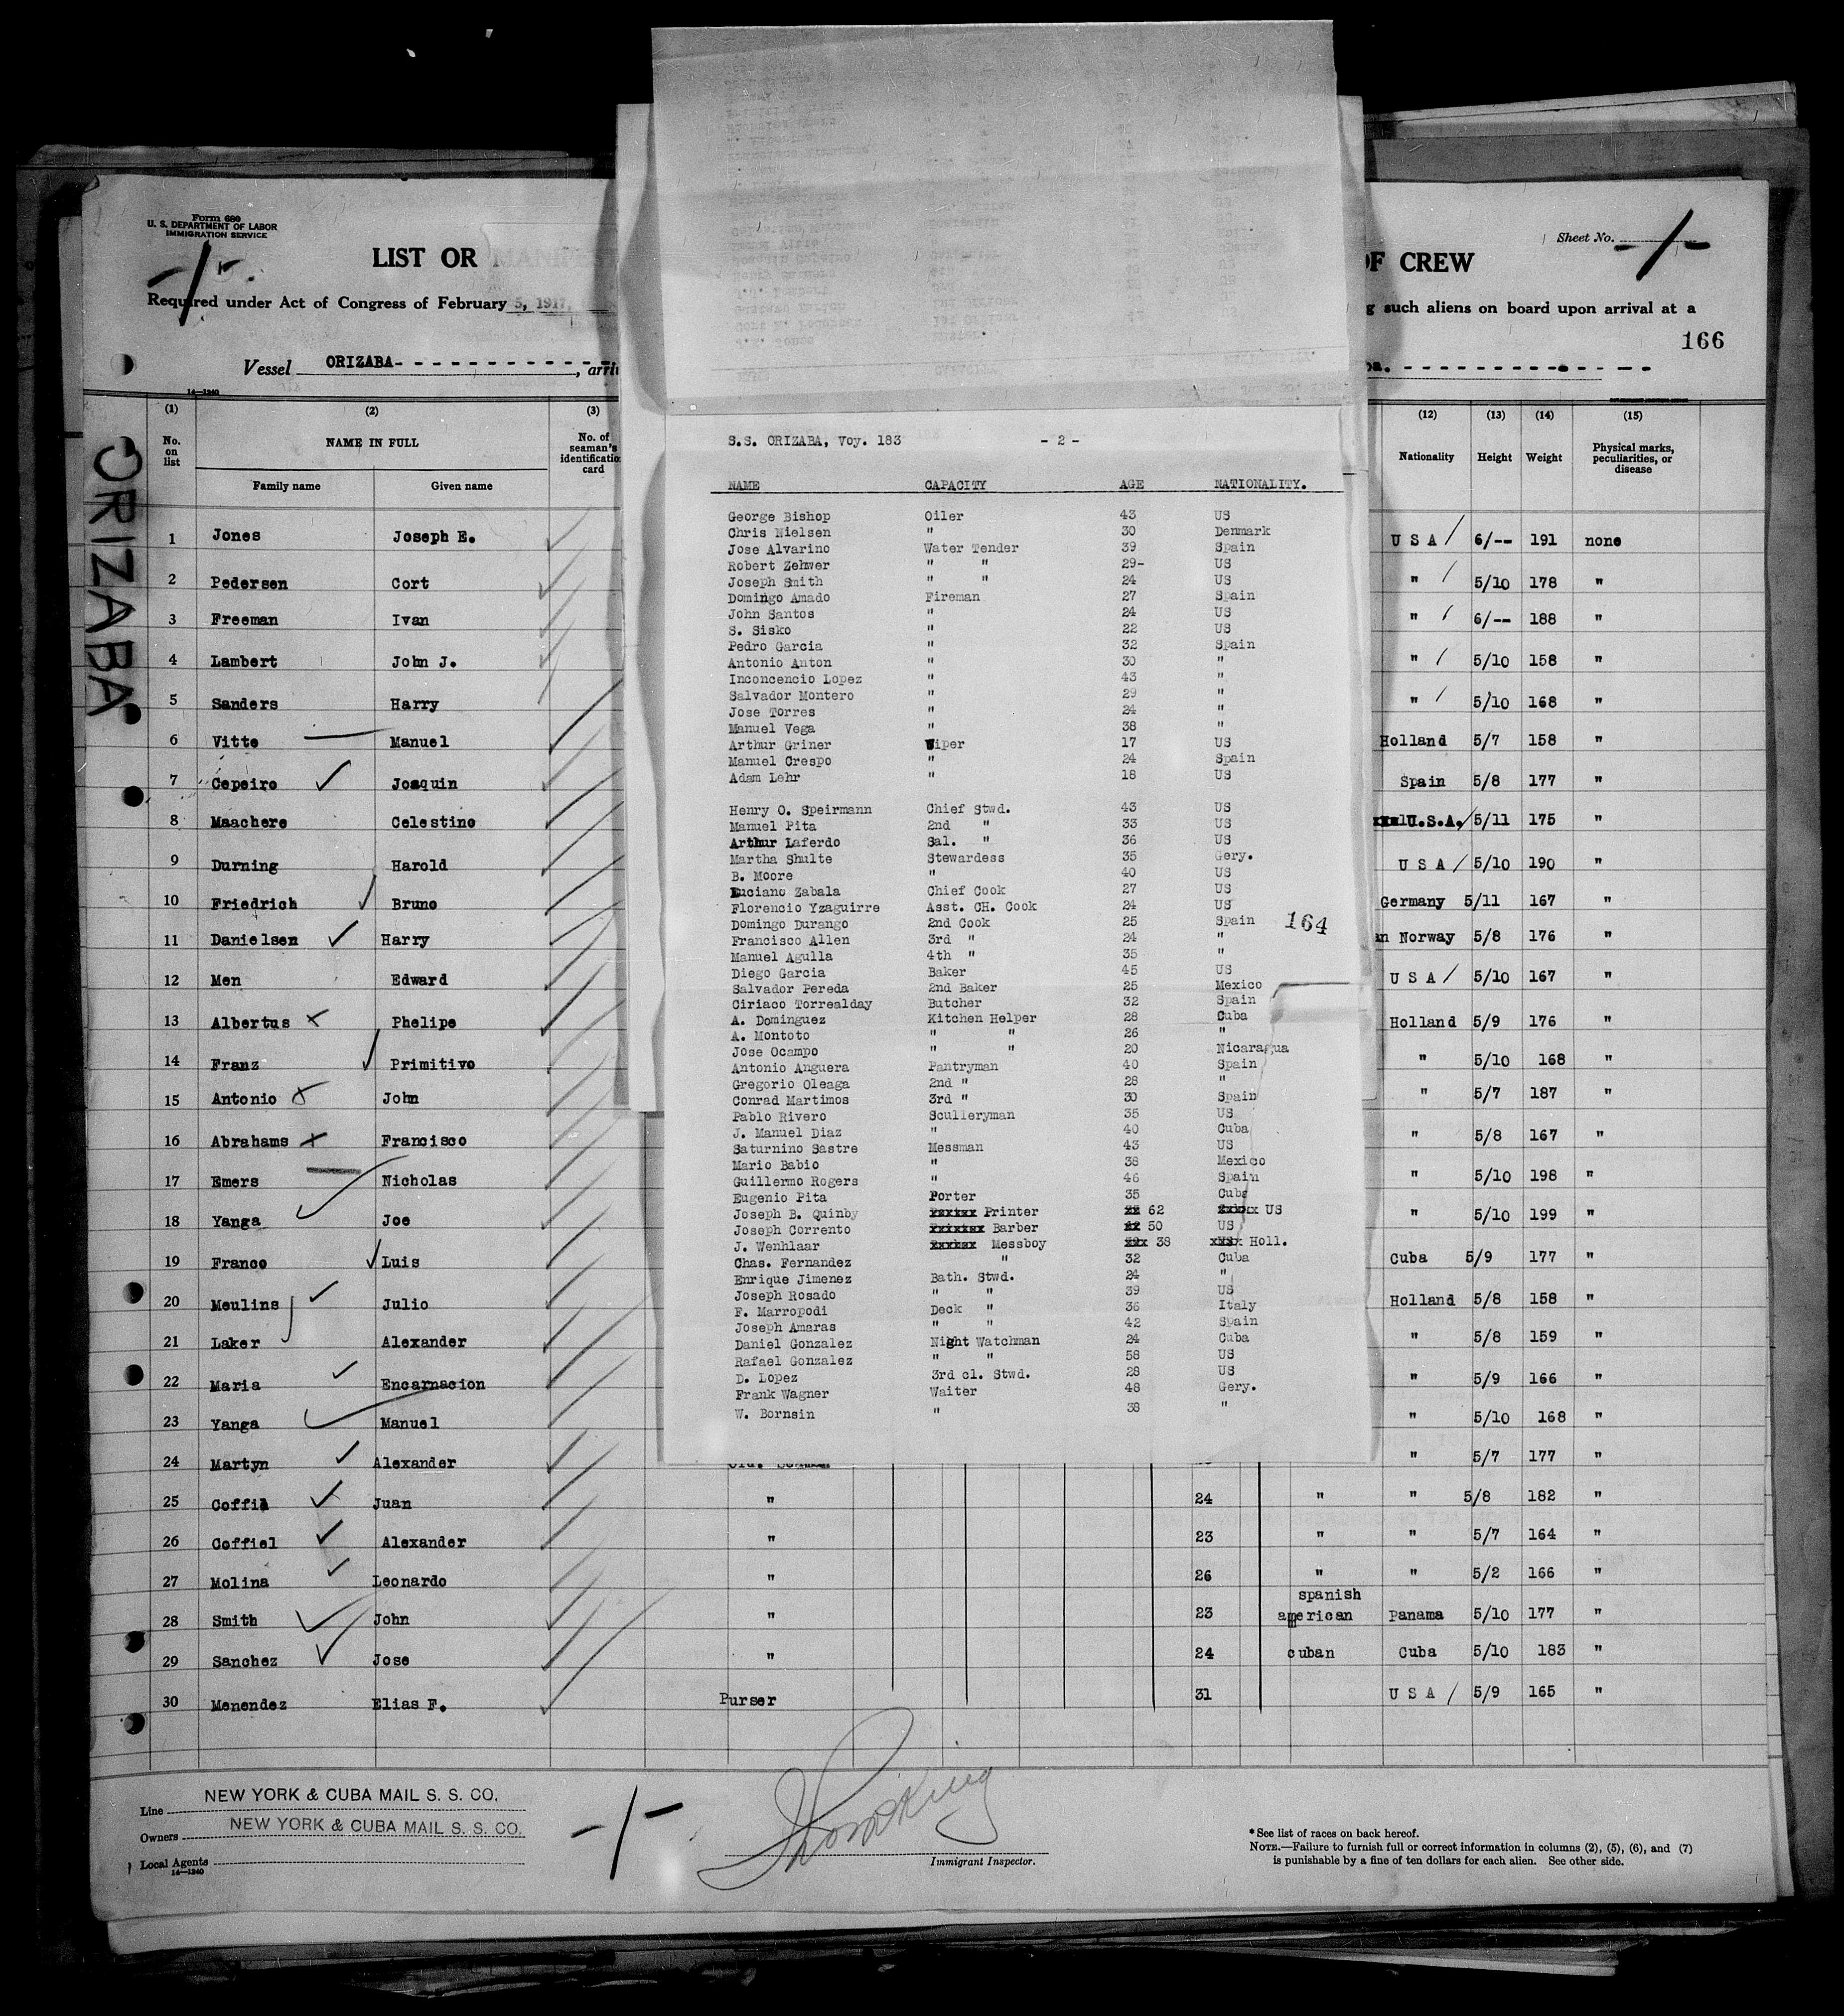 Form 680
U. S. DEPARTMENT OF LABOR
IMMIGRATION SERVICE
LIST OR
OF CREW
Sheet No.
Required under Act of Congress of February 5, 1917,
such aliens on board upon arrival at a
166
Vessel ORIZABA
14—1240
ORIZABA
(1) (2) (3) (12) (13) (14) (15)
No. on list NAME IN FULL No. of seaman's identification card Nationality Height Weight Physical marks, peculiarities, or disease
Family name Given name
1 Jones Joseph E. U S A 6/-- 191 none
2 Pedersen Cort " 5/10 178 "
3 Freeman Ivan " 6/-- 188 "
4 Lambert John J. " 5/10 158 "
5 Sanders Harry " 5/10 168 "
6 Vitte Manuel Holland 5/7 158 "
7 Cepeiro Joaquin Spain 5/8 177 "
8 Maachere Celestino U.S.A. 5/11 175 "
9 Durning Harold U S A 5/10 190 "
10 Friedrich Bruno Germany 5/11 167 "
11 Danielsen Harry Norway 5/8 176 "
12 Men Edward U S A 5/10 167 "
13 Albertus Phelipe Holland 5/9 176 "
14 Franz Primitivo " 5/10 168 "
15 Antonio John " 5/7 187 "
16 Abrahams Francisco " 5/8 167 "
17 Emers Nicholas " 5/10 198 "
18 Yanga Joe " 5/10 199 "
19 Franco Luis Cuba 5/9 177 "
20 Meulins Julio Holland 5/8 158 "
21 Laker Alexander " 5/8 159 "
22 Maria Encarnacion " 5/9 166 "
23 Yanga Manuel " 5/10 168 "
24 Martyn Alexander " 5/7 177 "
25 Coffil Juan " 24 " " 5/8 182 "
26 Coffiel Alexander " 23 " " 5/7 164 "
27 Molina Leonardo " 26 " " 5/2 166 "
28 Smith John " 23 spanish american Panama 5/10 177 "
29 Sanchez Jose " 24 cuban Cuba 5/10 183 "
30 Menendez Elias F. Purser 31 U S A 5/9 165 "
S.S. ORIZABA, Voy. 183 - 2 -
NAME CAPACITY AGE NATIONALITY.
George Bishop Oiler 43 US
Chris Nielsen " 30 Denmark
Jose Alvarino Water Tender 39 Spain
Robert Zehwer " " 29- US
Joseph Smith " " 24 US
Domingo Amado Fireman 27 Spain
John Santos " 24 US
S. Sisko " 22 US
Pedro Garcia " 32 Spain
Antonio Anton " 30 "
Inconcencio Lopez " 43 "
Salvador Montero " 29 "
Jose Torres " 24 "
Manuel Vega " 38 "
Arthur Griner Wiper 17 US
Manuel Crespo " 24 Spain
Adam Lehr " 18 US
Henry O. Speirmann Chief Stwd. 43 US
Manuel Pita 2nd " 33 US
Arthur Laferdo Sal. " 36 US
Martha Shulte Stewardess 35 Gery.
B. Moore " 40 US
Luciano Zabala Chief Cook 27 US
Florencio Yzaguirre Asst. CH. Cook 24 US
Domingo Durango 2nd Cook 25 Spain
164
Francisco Allen 3rd " 24 "
Manuel Agulla 4th " 35 "
Diego Garcia Baker 45 US
Salvador Pereda 2nd Baker 25 Mexico
Ciriaco Torrealday Butcher 32 Spain
A. Dominguez Kitchen Helper 28 Cuba
A. Montoto " " 26 "
Jose Ocampo " " 20 Nicaragua
Antonio Anguera Pantryman 40 Spain
Gregorio Oleaga 2nd " 28 "
Conrad Martimos 3rd " 30 Spain
Pablo Rivero Sculleryman 35 US
J. Manuel Diaz " 40 Cuba
Saturnino Sastre Messman 43 US
Mario Babio " 38 Mexico
Guillermo Rogers " 46 Spain
Eugenio Pita Porter 35 Cuba
Joseph B. Quinby Printer 62 US
Joseph Corrento Barber 50 US
J. Wenhlaar Messboy 38 Holl.
Chas. Fernandez " 32 Cuba
Enrique Jimenez Bath. Stwd. 24 "
Joseph Rosado " " 39 US
F. Marropodi Deck " 36 Italy
Joseph Amaras " " 42 Spain
Daniel Gonzalez Night Watchman 24 Cuba
Rafael Gonzalez " " 58 US
D. Lopez 3rd cl. Stwd. 28 US
Frank Wagner Waiter 48 Gery.
W. Bornsin " 38 "
Line NEW YORK & CUBA MAIL S. S. CO.
Owners NEW YORK & CUBA MAIL S. S. CO.
Local Agents
14—1240
Immigrant Inspector.
* See list of races on back hereof.
NOTE.—Failure to furnish full or correct information in columns (2), (5), (6), and (7)
is punishable by a fine of ten dollars for each alien. See other side.